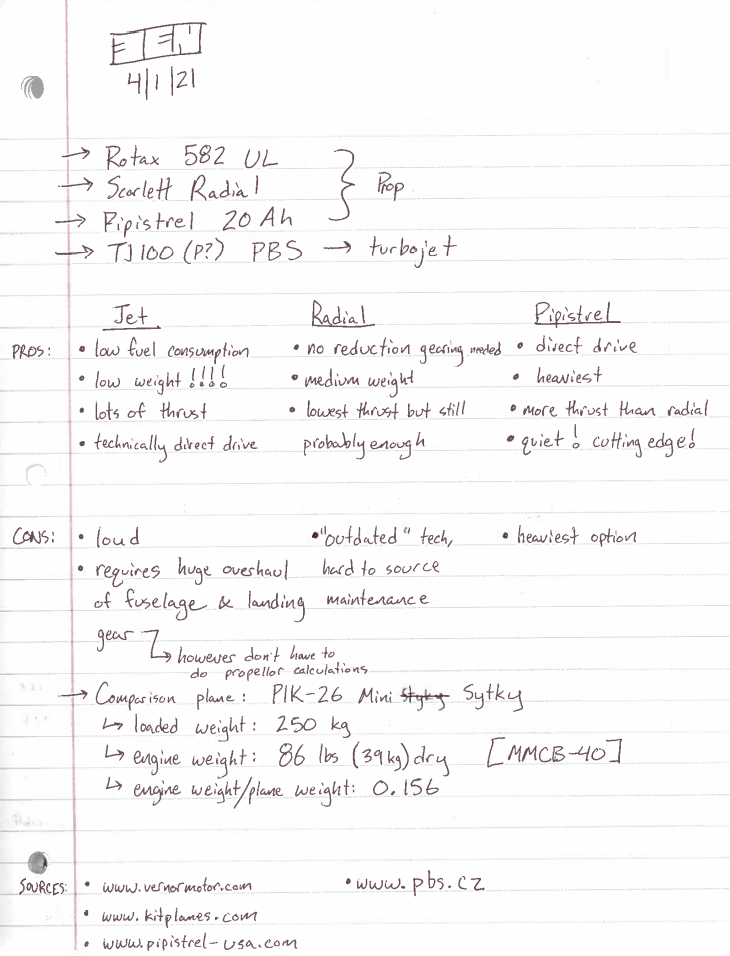 4/1/21
→ Rotax 582 UL
→ Scarlett Radial } Prop
→ Pipistrel 20 Ah
→ TJ100 (P?) PBS → turbojet
Jet Radial Pipistrel
PROS: • low fuel consumption • no reduction gearing needed • direct drive
• low weight !!!! • medium weight • heaviest
• lots of thrust • lowest thrust but still • more thrust than radial
• technically direct drive probably enough • quiet! cutting edge!
CONS: • loud • "outdated" tech, • heaviest option
• requires huge overhaul hard to source
of fuselage & landing maintenance
gear
↳ however don't have to
do propellor calculations
→ Comparison plane: PIK-26 Mini Sytky
↳ loaded weight: 250 kg
↳ engine weight: 86 lbs (39kg) dry [MMCB-40]
↳ engine weight/plane weight: 0.156
SOURCES: • www.vernormotor.com • www.pbs.cz
• www.kitplanes.com
• www.pipistrel-usa.com